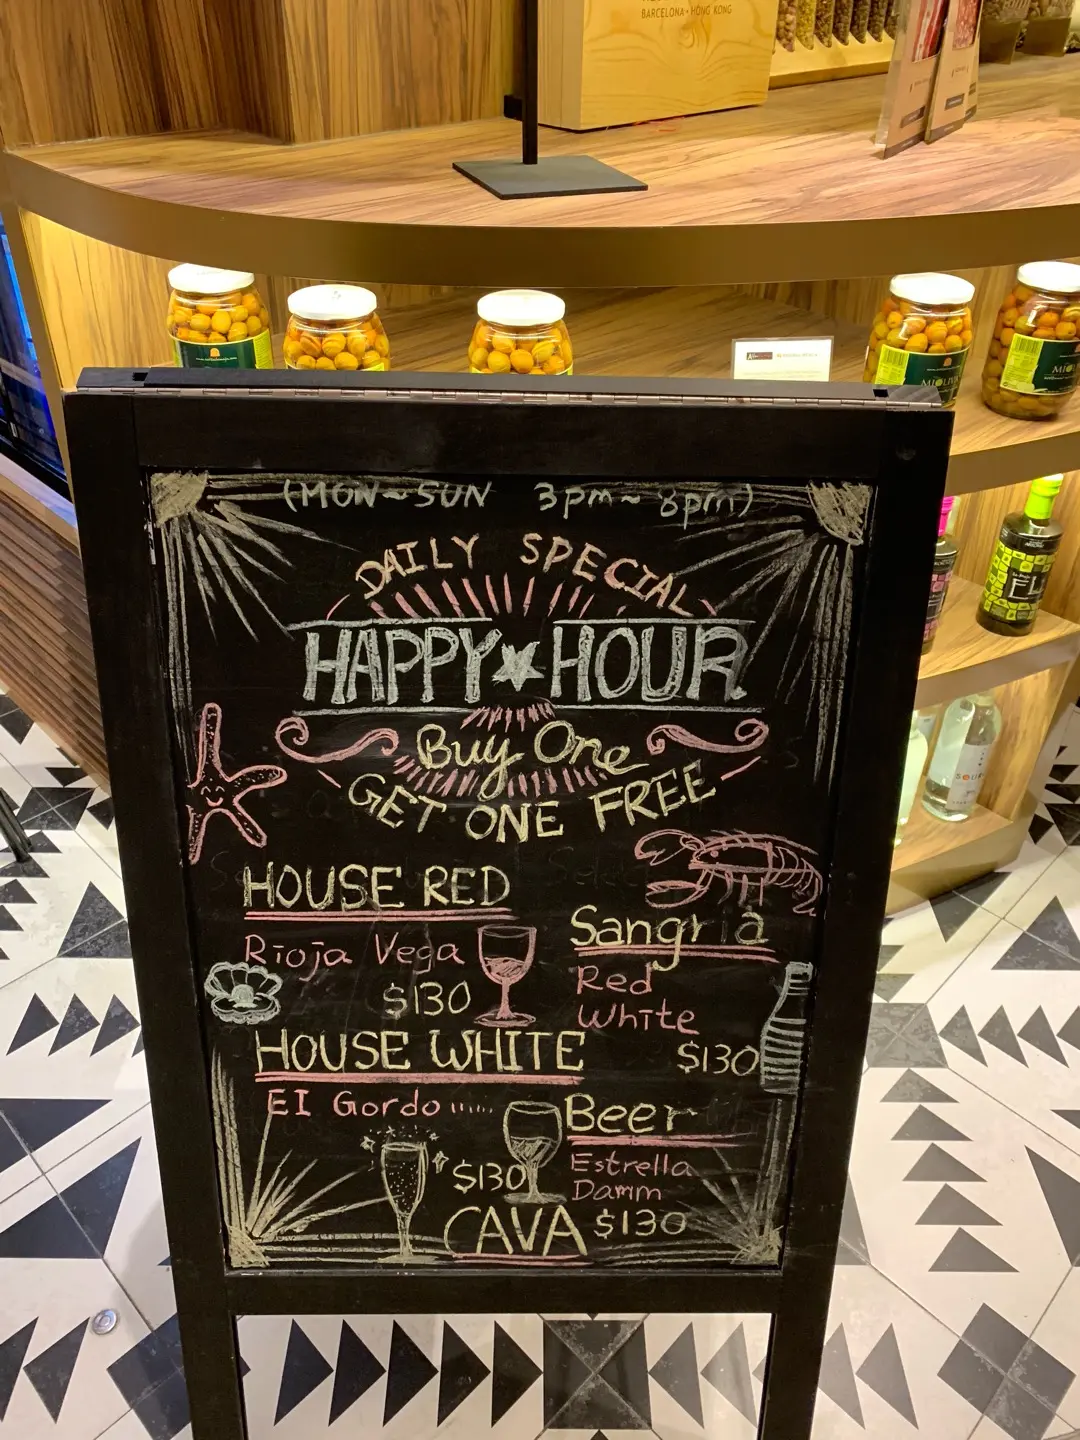 BARCELONA • HONG KONG
MIOLIVA
(MON~SUN 3pm~8pm)
DAILY SPECIAL
HAPPY HOUR
Buy One
GET ONE FREE
HOUSE RED
Rioja Vega
$130
HOUSE WHITE
EI Gordo
$130
CAVA
Sangria
Red
White
$130
Beer
Estrella
Damm
$130